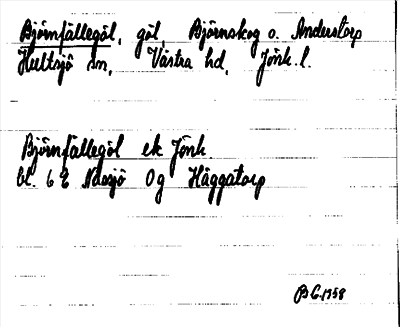 Björnfällegöl, göl, Björnskog o. Anderstorp
Hultsjö sn, Västra hd, Jönk. l.
Björnfällegöl ek Jönk.
bl. 6 E Nässjö Og Häggatorp
B G. 1958